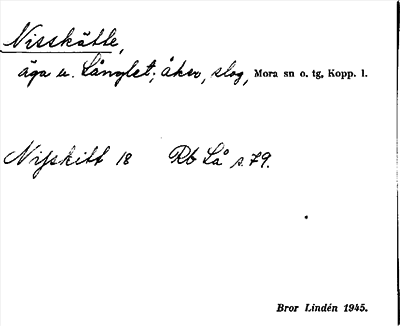 Nisskälle,
äga u. Långlet; åker, slog, Mora sn o. tg, Kopp. l.
Nisskitt 18 Rb Lå s. 79.
Bror Lindén 1945.